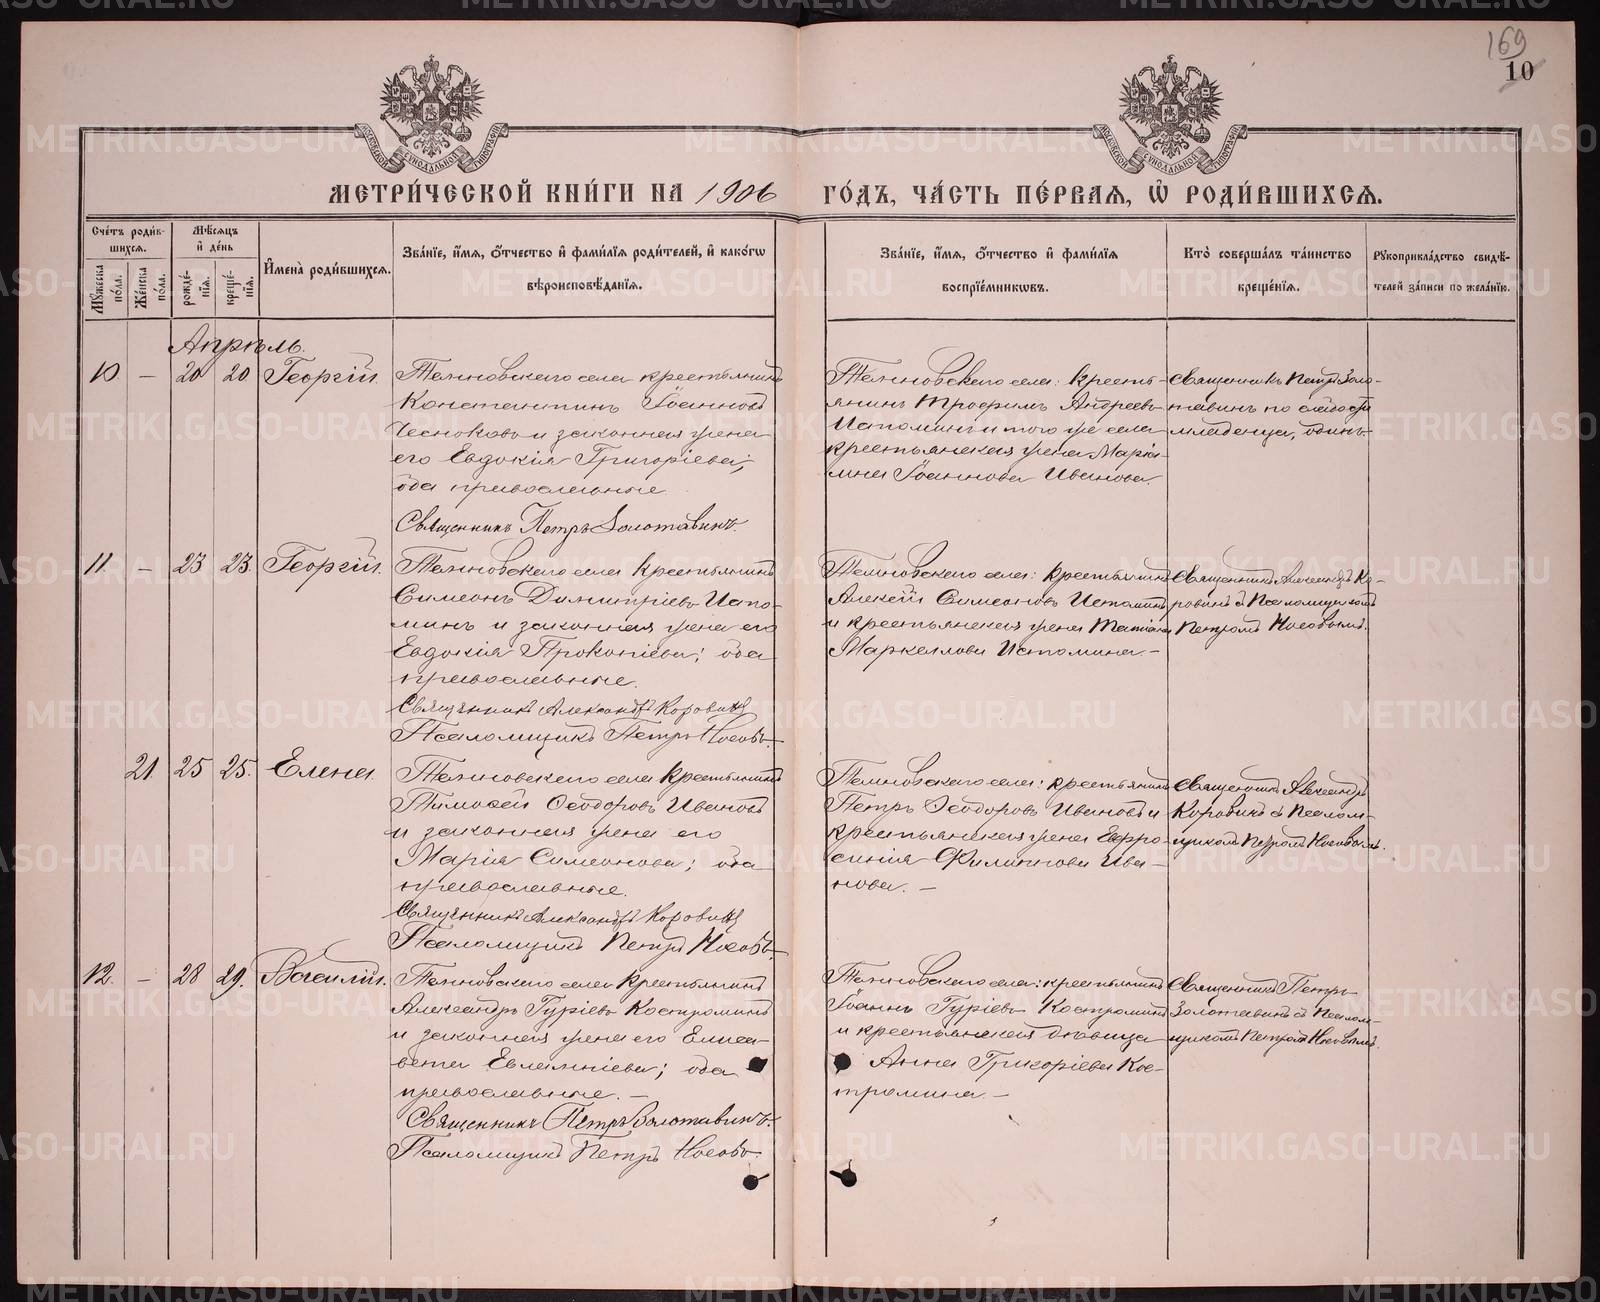 169
10
МОСКОВСКОЙ СѴНОДАЛЬНОЙ ТИПОГРАФІИ
МОСКОВСКОЙ СѴНОДАЛЬНОЙ ТИПОГРАФІИ
МЕТРИ́ЧЕСКОЙ КНИ́ГИ НА 1906 ГО́ДЪ, ЧА́СТЬ ПЕ́РВАЯ, Ѡ҆ РОДИ́ВШИХСЯ.
Сче́тъ роди́в-
шихся.
Мѣ́сяцъ
и҆ де́нь
Мꙋ́жеска по́ла.
Же́нска по́ла.
рожде́-
нїѧ.
креще́-
нїѧ.
И҆мена̀ роди́вшихся.
Зва́нїе, и҆́мѧ, ѻ҆́тчество и҆ фами́лїѧ роди́телей, и҆ како́гѡ
вѣроисповѣ́данїѧ.
Зва́нїе, и҆́мѧ, ѻ҆́тчество и҆ фами́лїѧ
воспрїе́мниковъ.
Кто̀ соверша́лъ та́инство
креще́нїѧ.
Рꙋкоприкла́дство свидѣ́-
телей за́писи по жела́нїю.
Апрѣль.
10. — 20 20 Георгій.
Темновскаго села крестьянинъ
Константинъ Іоанновъ
Чесноковъ и законная жена
его Евдокія Григоріева;
оба православные
Священникъ Петръ Золотавинъ.
Темновскаго села: кресть-
янинъ Трофимъ Андреевъ
Истоминъ и того же села
крестьянская жена Марі-
мна Іоаннова Иванова.
Священникъ Петръ Золо-
тавинъ по слабости
младенца, одинъ.
11. — 23 23. Георгій.
Темновскаго села крестьянинъ
Симеонъ Димитріевъ Исто-
минъ и законная жена его
Евдокія Прокопіева; оба
православные.
Священникъ Александръ Коровинъ
Псаломщикъ Петръ Носовъ.
Темновскаго села: крестьянинъ
Алексѣй Симеоновъ Истоминъ
и крестьянская жена Татіана
Маркеллова Истомина. —
Священникъ Александръ Ко-
ровинъ съ Псаломщикомъ
Петромъ Носовымъ.
21. 25 25. Елена.
Темновскаго села крестьянинъ
Тимоѳей Ѳеодоровъ Ивановъ
и законная жена его
Марія Симеонова; оба
православные.
Священникъ Александръ Коровинъ
Псаломщикъ Петръ Носовъ.
Темновскаго села: крестьянинъ
Петръ Ѳеодоровъ Ивановъ и
крестьянская жена Евфро-
синія Филиппова Ива-
нова. —
Священникъ Александръ
Коровинъ съ Псалом-
щикомъ Петромъ Носовымъ.
12. — 28 29. Василій.
Темновскаго села крестьянинъ
Александръ Гуріевъ Костроминъ
и законная жена его Елиса-
вета Евлампіева; оба
православные. —
Священникъ Петръ Золотавинъ.
Псаломщикъ Петръ Носовъ.
Темновскаго села: крестьянинъ
Іоаннъ Гуріевъ Костроминъ
и крестьянская дѣвица
Анна Григоріева Кос-
тромина. —
Священникъ Петръ
Золотавинъ съ Псалом-
щикомъ Петромъ Носовымъ.
METRIKI.GASO-URAL.RU